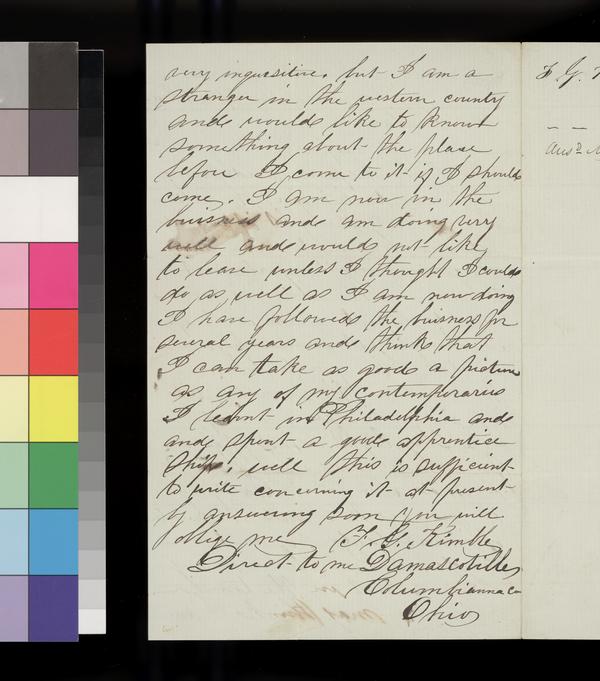 very inquisitive. but I am a
stranger in the western country
and would like to know
something about the place
before I come to it if I should
come. I am now in the
buisness and am doing very
well and would not like
to leave unless I thought I could
do as well as I am now doing
I have followed the buisness for
several years and think that
I can take as good a picture
as any of my contemporaries
I learnt in Philadelphia and
and spent a good apprentice
ship. well this is sufficient
to write concerning it at present
by answering soon you will
oblige me F. G. Kimble
Direct to me Damascoville
Columbianna Co
Ohio
F G.